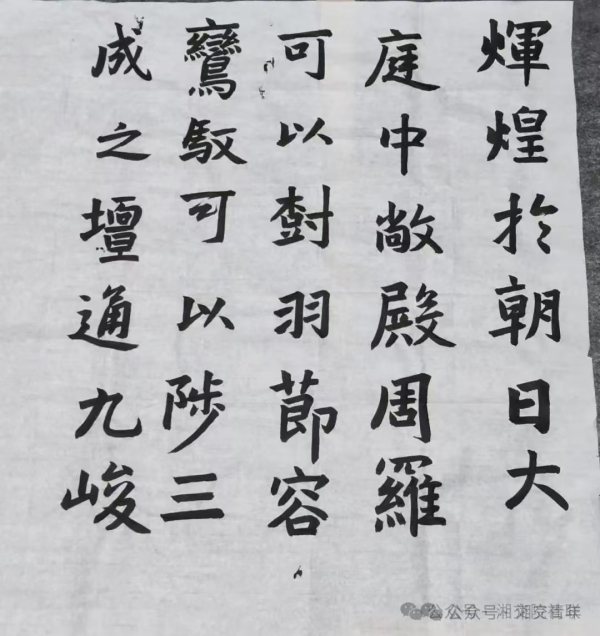 輝煌於朝日大
庭中敞殿周羅
可以樹羽莭容
鸞馭可以陟三
成之壇通九峻
公众号